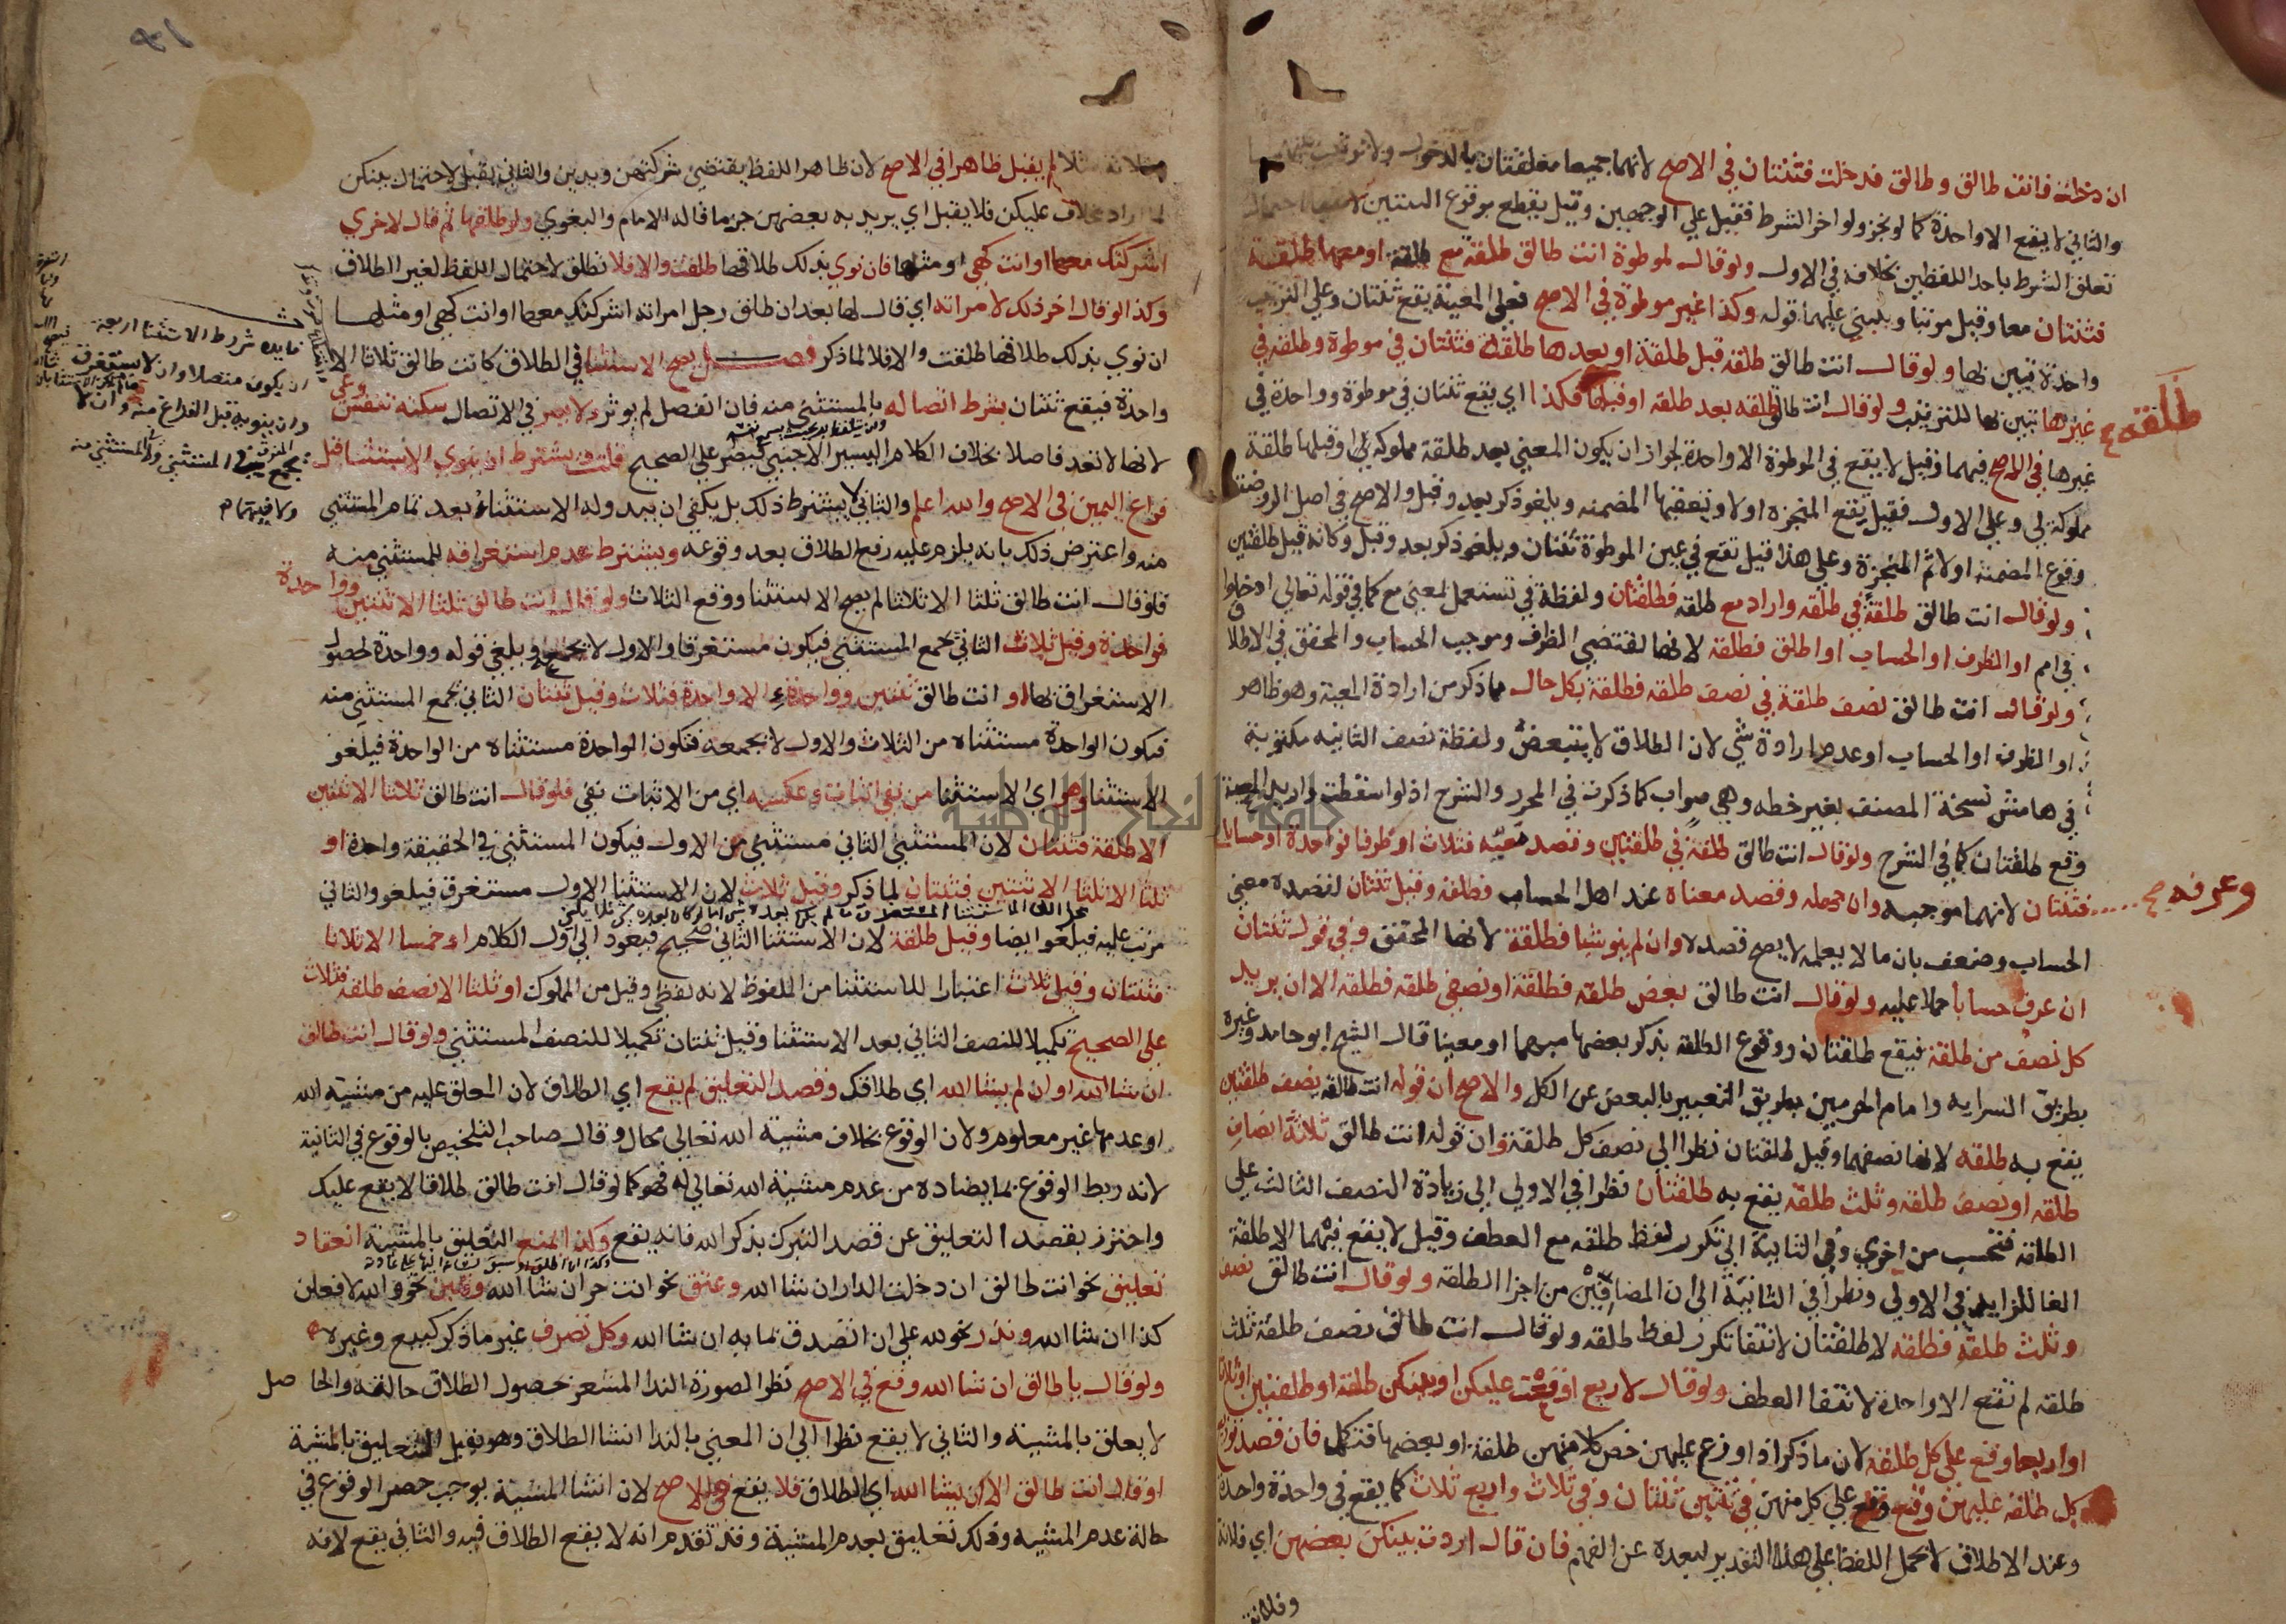 ان دخلت فانت طالق وطالق فدخلت فثنتان في الاصح لانهما جميعا معلقتان بالدخول ولا ترتيب بينهما
والثاني لا يقع الا واحدة كما لو نجز ولو اخر الشرط فقيل علي الوجهين وقيل يقطع بوقوع الثنتين
تعلق الشرط باحد اللفظين بخلافه في الاول ولو قال لموطوة انت طالق طلقة مع طلقة او معها طلقة
فثنتان معا وقيل مرتبا وينبني عليهما قوله وكذا غير موطوة في الاصح فعلي المعية يقع ثنتان وعلي الترتيب
واحدة تبين بها ولو قال انت طالق طلقة قبل طلقة او بعدها طلقة فثنتان في موطوة وطلقة في
غيرها تبين بها للترتيب ولو قال انت طالق طلقه بعد طلقه او قبلها فكذا اي يقع ثنتان في موطوة وواحدة في
طلقه
غيرها في الاصح فيهما وقيل لا يقع في الموطوة الا واحدة لجواز ان يكون المعني بعد طلقة مملوكة لي او قبلها طلقة
مملوكة لي وعلي الاول فقيل يقع المنجزه اولا وتتعقبها المضمنه ويلغو ذكر بعد وقبل والاصح في اصل الروضة
وقوع المضمنة اولا ثم المنجزة وعلي هذا قيل تقع في غير الموطوة ثنتان ويلغو ذكر بعد وقبل وكانه قيل طلقتين
ولو قال انت طالق طلقة في طلقه واراد مع طلقه فطلقتان ولفظة في تستعمل بمعنى مع كما في قوله تعالي ادخلوا
في امم او الظرف او الحساب او اطلق فطلقه لانها مقتضي الظرف وموجب الحساب والمحقق في الاطلا
ق
ولو قال انت طالق نصف طلقة في نصف طلقه فطلقة بكل حال مما ذكر من ارادة المعية وهو ظاهر
او الظرف او الحساب او عدم ارادة شي لان الطلاق لا يتبعض ولفظة نصف الثانيه مكتوبة
في هامش نسخة المصنف بغير خطه وهي صواب كما ذكرت في المحرر والشرح اذ لو اسقطت واريد المعية
وقع طلقتان كما في الشرح ولو قال انت طالق طلقة في طلقتين وقصد معية فثلاث او ظرفا فواحدة او حسابا
وعرفه صح
فثنتان لانهما موجبه وان جهله وقصد معناه عند اهل الحساب فطلقة وقيل ثنتان لقصده معني
الحساب وضعف بان ما لا يعلمه لا يصح قصده وان لم ينو شيا فطلقة لانها المحقق وفي قول ثنتان
ان عرف حسابا حملا عليه ولو قال انت طالق بعض طلقه فطلقة او نصفي طلقه فطلقه الا ان يريد
كل نصف من طلقة فيقع طلقتان ووقوع الطلقه بذكر بعضها مبهما او معينا قال الشيخ ابو حامد وغيره
بطريق السرايه وامام الحرمين بطريق التعبير بالبعض عن الكل والاصح ان قوله انت طالق نصف طلقتين
يقع به طلقه لانها نصفهما وقيل طلقتان نظرا الي نصف كل طلقة وان قوله انت طالق ثلاثة انصاف
طلقه او نصف طلقه وثلث طلقه يقع به طلقتان نظرا في الاولي الي زيادة النصف الثالث علي
الطلقه فتحسب من اخري وفي الثانية الي تكرر لفظ طلقه مع العطف وقيل لا يقع فيهما الا طلقة
الغا للزايد في الاولي ونظرا في الثانية الي ان المضافين من اجزا الطلقه ولو قال انت طالق نصف
وثلث طلقة فطلقه لا طلقتان لانتفا تكرر لفظ طلقه ولو قال انت طالق نصف طلقة ثلث
طلقه لم تقع الا واحدة لانتفا العطف ولو قال لاربع اوقعت عليكن او بينكن طلقة او طلقتين او ثلاثا
او اربعا وقع علي كل طلقة لان ما ذكر اذا وزع عليهن خص كلا منهن طلقة او بعضها فتكمل فان قصد توزيع
كل طلقة عليهن وقع علي كل منهن في ثنتين ثنتان وفي ثلاث واربع ثلاث كما يقع في واحدة واحدة
وعند الاطلاق لا يحمل اللفظ علي هذا التقدير لبعده عن الفهم فان قال اردت بينكن بعضهن اي فلانة
وفلانة
وفلانة مثلا لم يقبل ظاهرا في الاصح لان ظاهر اللفظ يقتضي شركتهن ويدين والثاني يقبل لاحتمال بينكن
لما اراد بخلاف عليكن فلا يقبل اي يريد به بعضهن جزما قاله الامام والبغوي ولو طلقها ثم قال لاخري
اشركتك معها او انت كهي او مثلها فان نوي بذلك طلاقها طلقت والا فلا تطلق لاحتمال اللفظ لغير الطلاق
وكذا لو قال اخر ذلك لامراته اي قال لها بعد ان طلق رجل امراته اشركتك معها او انت كهي او مثلها
ان نوي بذلك طلاقها طلقت والا فلا لما ذكر فصل يصح الاستثنا في الطلاق كانت طالق ثلاثا الا
واحدة فيقع ثنتان بشرط اتصاله بالمستثني منه فان انفصل لم يوثر ولا يضر في الاتصال سكته تنفس
وعي
لانها لا تعد فاصلا بخلاف الكلام اليسير الاجنبي فيضر علي الصحيح قلت ويشترط ان ينوي الاستثنا قبل
فراغ اليمين في الاصح والله اعلم والثاني لا يشترط ذلك بل يكفي ان يبدو له الاستثناء بعد تمام المستثني
منه واعترض ذلك بانه يلزم عليه رفع الطلاق بعد وقوعه ويشترط عدم استغراقه للمستثني منه
فلو قال انت طالق ثلثا الا ثلاثا لم يصح الاستثنا ووقع الثلاث ولو قال انت طالق ثلثا الا ثنتين وواحدة
فواحدة وقيل ثلاث الثاني يجمع المستثني فيكون مستغرقا والاول لا يجمع ويلغي قوله وواحدة لحصول
الاستغراق بها او انت طالق ثنتين وواحدة الا واحدة فثلاث وقيل ثنتان الثاني يجمع المستثني منه
فتكون الواحدة مستثناه من الثلاث والاول لا يجمعه فتكون الواحدة مستثناه من الواحدة فيلغو
الاستثنا وهو اي الاستثنا من نفي اثبات وعكسه اي من الاثبات نفي فلو قال انت طالق ثلاثا الا ثنتين
الا طلقة فثنتان لان المستثني الثاني مستثني من الاول فيكون المستثني في الحقيقة واحدة او
ثلثا الا ثلثا الا ثنتين فثنتان لما ذكر وقيل ثلاث لان الاستثنا الاول مستغرق فيلغو والثاني
مرتب عليه فيلغو ايضا وقيل طلقة لان الاستثنا الثاني صحيح فيعود الي اول الكلام او خمسا الا ثلاثا
فثنتان وقيل ثلاث اعتبارا للاستثنا من الملفوظ لانه لفظي وقيل من المملوك او ثلثا الا نصف طلقة فثلاث
علي الصحيح تكميلا للنصف الثاني بعد الاستثنا وقيل ثنتان تكميلا للنصف المستثني ولو قال انت طالق
ان شا الله او ان لم يشا الله اي طلاقك وقصد التعليق لم يقع اي الطلاق لان المعلق عليه من مشيته الله
او عدمها غير معلوم ولان الوقوع بخلاف مشيته الله تعالي محال وقال صاحب التلخيص بالوقوع في الثانية
لانه ربط الوقوع بما يضاده من عدم مشيئة الله تعالي له فهو كما لو قال انت طالق طلاقا لا يقع عليك
واحترز بقصد التعليق عن قصد التبرك بذكر الله فانه يقع وكذا يمنع التعليق بالمشيئة انعقاد
تعليق نحو انت طالق ان دخلت الدار ان شا الله وعتق نحو انت حر ان شا الله ويمين نحو والله لافعلن
كذا ان شا الله ونذر نحو لله علي ان اتصدق بمايه ان شا الله وكل تصرف غير ما ذكر كبيع وغيره
ولو قال يا طالق ان شا الله وقع في الاصح نظرا لصورة الندا المشعر بحصول الطلاق حالته والحاصل
لا يعلق بالمشيئة والثاني لا يقع نظرا الي ان المعني بالندا انشا الطلاق وهو يقبل التعليق بالمشية
او قال انت طالق الا ان يشا الله اي الطلاق فلا يقع في الاصح لان استثنا المشية يوجب حصر الوقوع في
حالة عدم المشيه وذلك تعليق بعدم المشيئة وقد تقدم انه لا يقع الطلاق فيه والثاني يقع لانه
فايده شرط الاستثنا اربعة
ان يكون متصلا وان لا يستغرق
وان ينويه قبل الفراغ منه وان لا
يجمع المفرق في المستثني ولا المستثني منه
ولا فيهما
جامعة النجاح الوطنية